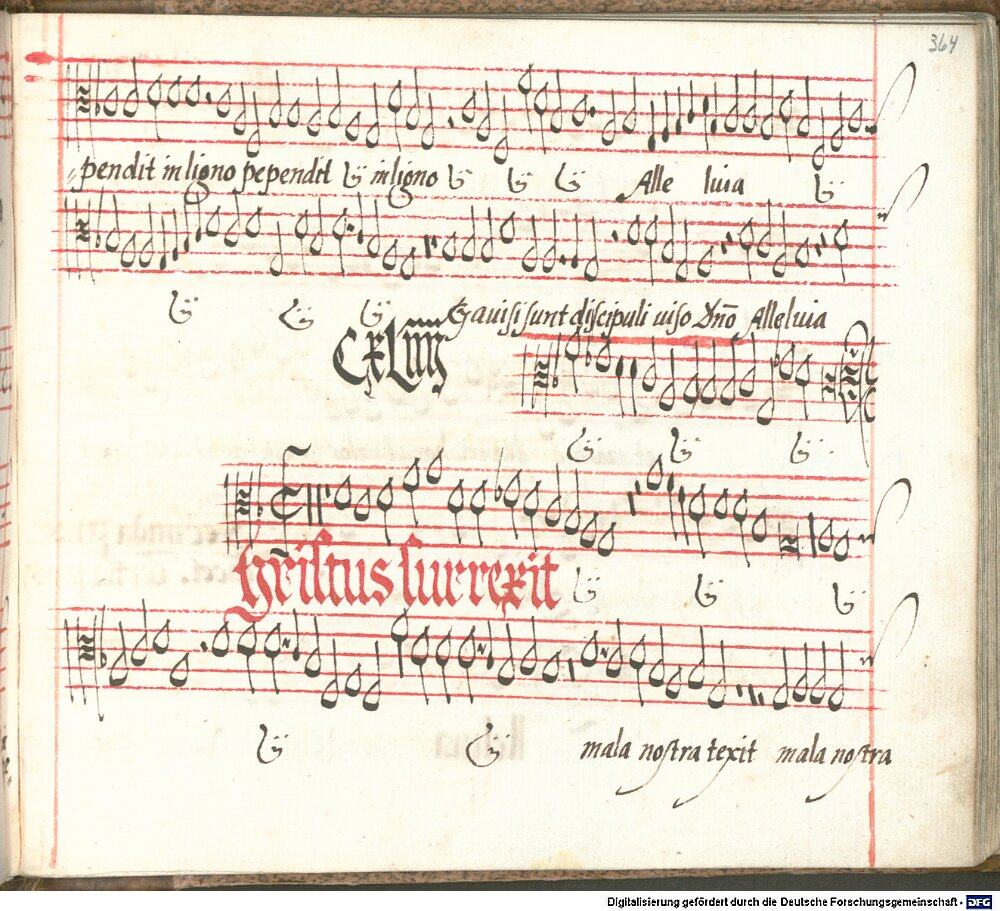 364
pendit in ligno pependit ij in ligno ij ij ij Alle luia ij
ij ij ij Gavisi sunt discipuli viso Dño Alleluia
CXLIIII
ij ij ij
Christus surrexit ij ij ij
ij ij mala nostra texit mala nostra
Digitalisierung gefördert durch die Deutsche Forschungsgemeinschaft - DFG